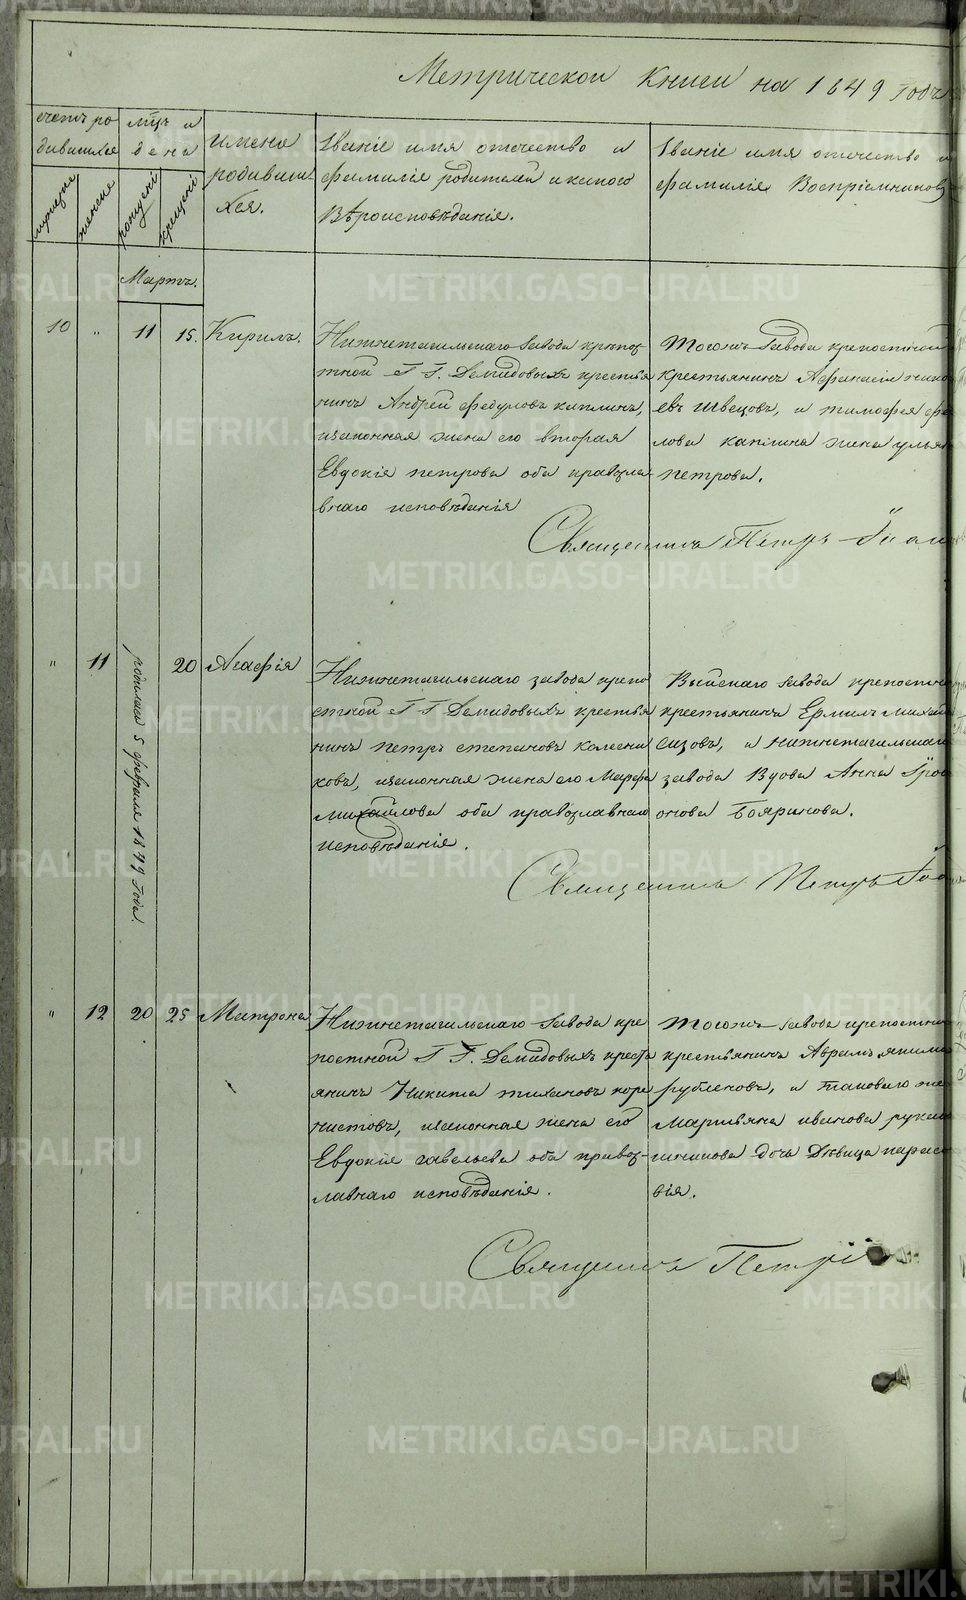 Метрической Книги на 1849 годъ
счетъ ро
дившихся
мцъ и
день
имена
родивши
хся.
Званіе имя отечество и
фамилія родителей и какого
Вѣроисповѣданія.
Званіе имя отечество и
фамилія Воспріемниковъ
мужеска
женска
рожденія
крещенія
Мартъ.
10 " 11 15. Кирилъ.
Нижнетагильскаго завода крѣпос
тной ГГ. Демидовыхъ крестья
нинъ Андрей Федуловъ каплинъ,
изаконная жена его вторая
Евдокія петрова оба правосла
внаго исповѣданія
Тогожъ завода крепостной
крестьянинъ Афанасій
евъ швецовъ, и тимофея фе
лова каплина жена улья
петрова.
Священникъ Петръ
" 11 родилась 5 февраля 1849 года. 20 Агафія
Нижнетагильскаго завода крепо
стной ГГ Демидовыхъ крестья
нинъ петръ степановъ колесни
ковъ, изаконная жена его Марфа
михайлова оба православнаго
исповѣданія.
Выйскаго завода крепостно
крестьянинъ Ермилъ михаи
Сизовъ, и нижнетагильскаг
завода Вдова Анна
онова Бояринова.
Священникъ Петръ
" 12 20 25 Матрона
Нижнетагильскаго завода кре
постной ГГ. Демидовыхъ кресть
янинъ Никита тихановъ коре
нистовъ, изаконная жена его
Евдокія савельева оба правос-
лавнаго исповѣданія.
Тогожъ завода крепостно
крестьянинъ Аврамъ якимо
рубленовъ, и таковаго же
Мартьяна иванова рука
шникова дочь Дѣвица парас
вія.
Священникъ Петръ
METRIKI.GASO-URAL.RU